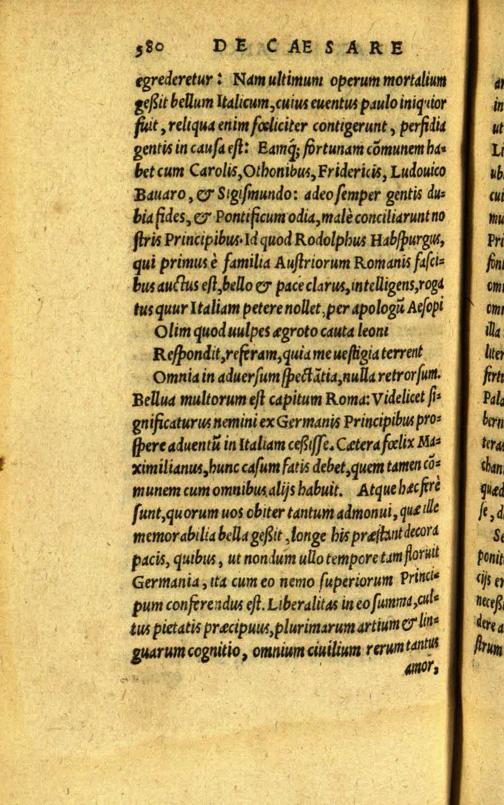 580 DE CAESARE
egrederetur: Nam ultimum operum mortalium
geßit bellum Italicum, cuius euentus paulo iniquior
fuit, reliqua enim fœliciter contigerunt, perfidia
gentis in causa est: Eamq́; fortunam cōmunem ha-
bet cum Carolis, Othonibus, Fridericis, Ludouico
Bauaro, & Sigismundo: adeo semper gentis du-
bia fides, & Pontificum odia, malè conciliarunt no
stris Principibus. Id quod Rodolphus Habspurgus,
qui primus è familia Austriorum Romanis fasci-
bus auctus est, bello & pace clarus, intelligens, roga
tus quur Italiam petere nollet, per apologū Aesopi
Olim quod uulpes ægroto cauta leoni
Respondit, referam, quia me uestigia terrent
Omnia in aduersum spectātia, nulla retrorsum.
Bellua multorum est capitum Roma: Videlicet si-
gnificaturus nemini ex Germanis Principibus pro-
spere aduentū in Italiam ceßisse. Cætera fœlix Ma-
ximilianus, hunc casum fatis debet, quem tamen cō-
munem cum omnibus alijs habuit. Atque hæc ferè
sunt, quorum uos obiter tantum admonui, quæ ille
memorabilia bella geßit, longe his præstant decora
pacis, quibus, ut nondum ullo tempore tam floruit
Germania, ita cum eo nemo superiorum Princi-
pum conferendus est. Liberalitas in eo summa, cul-
tus pietatis præcipuus, plurimarum artium & lin-
guarum cognitio, omnium ciuilium rerum tantus
amor,